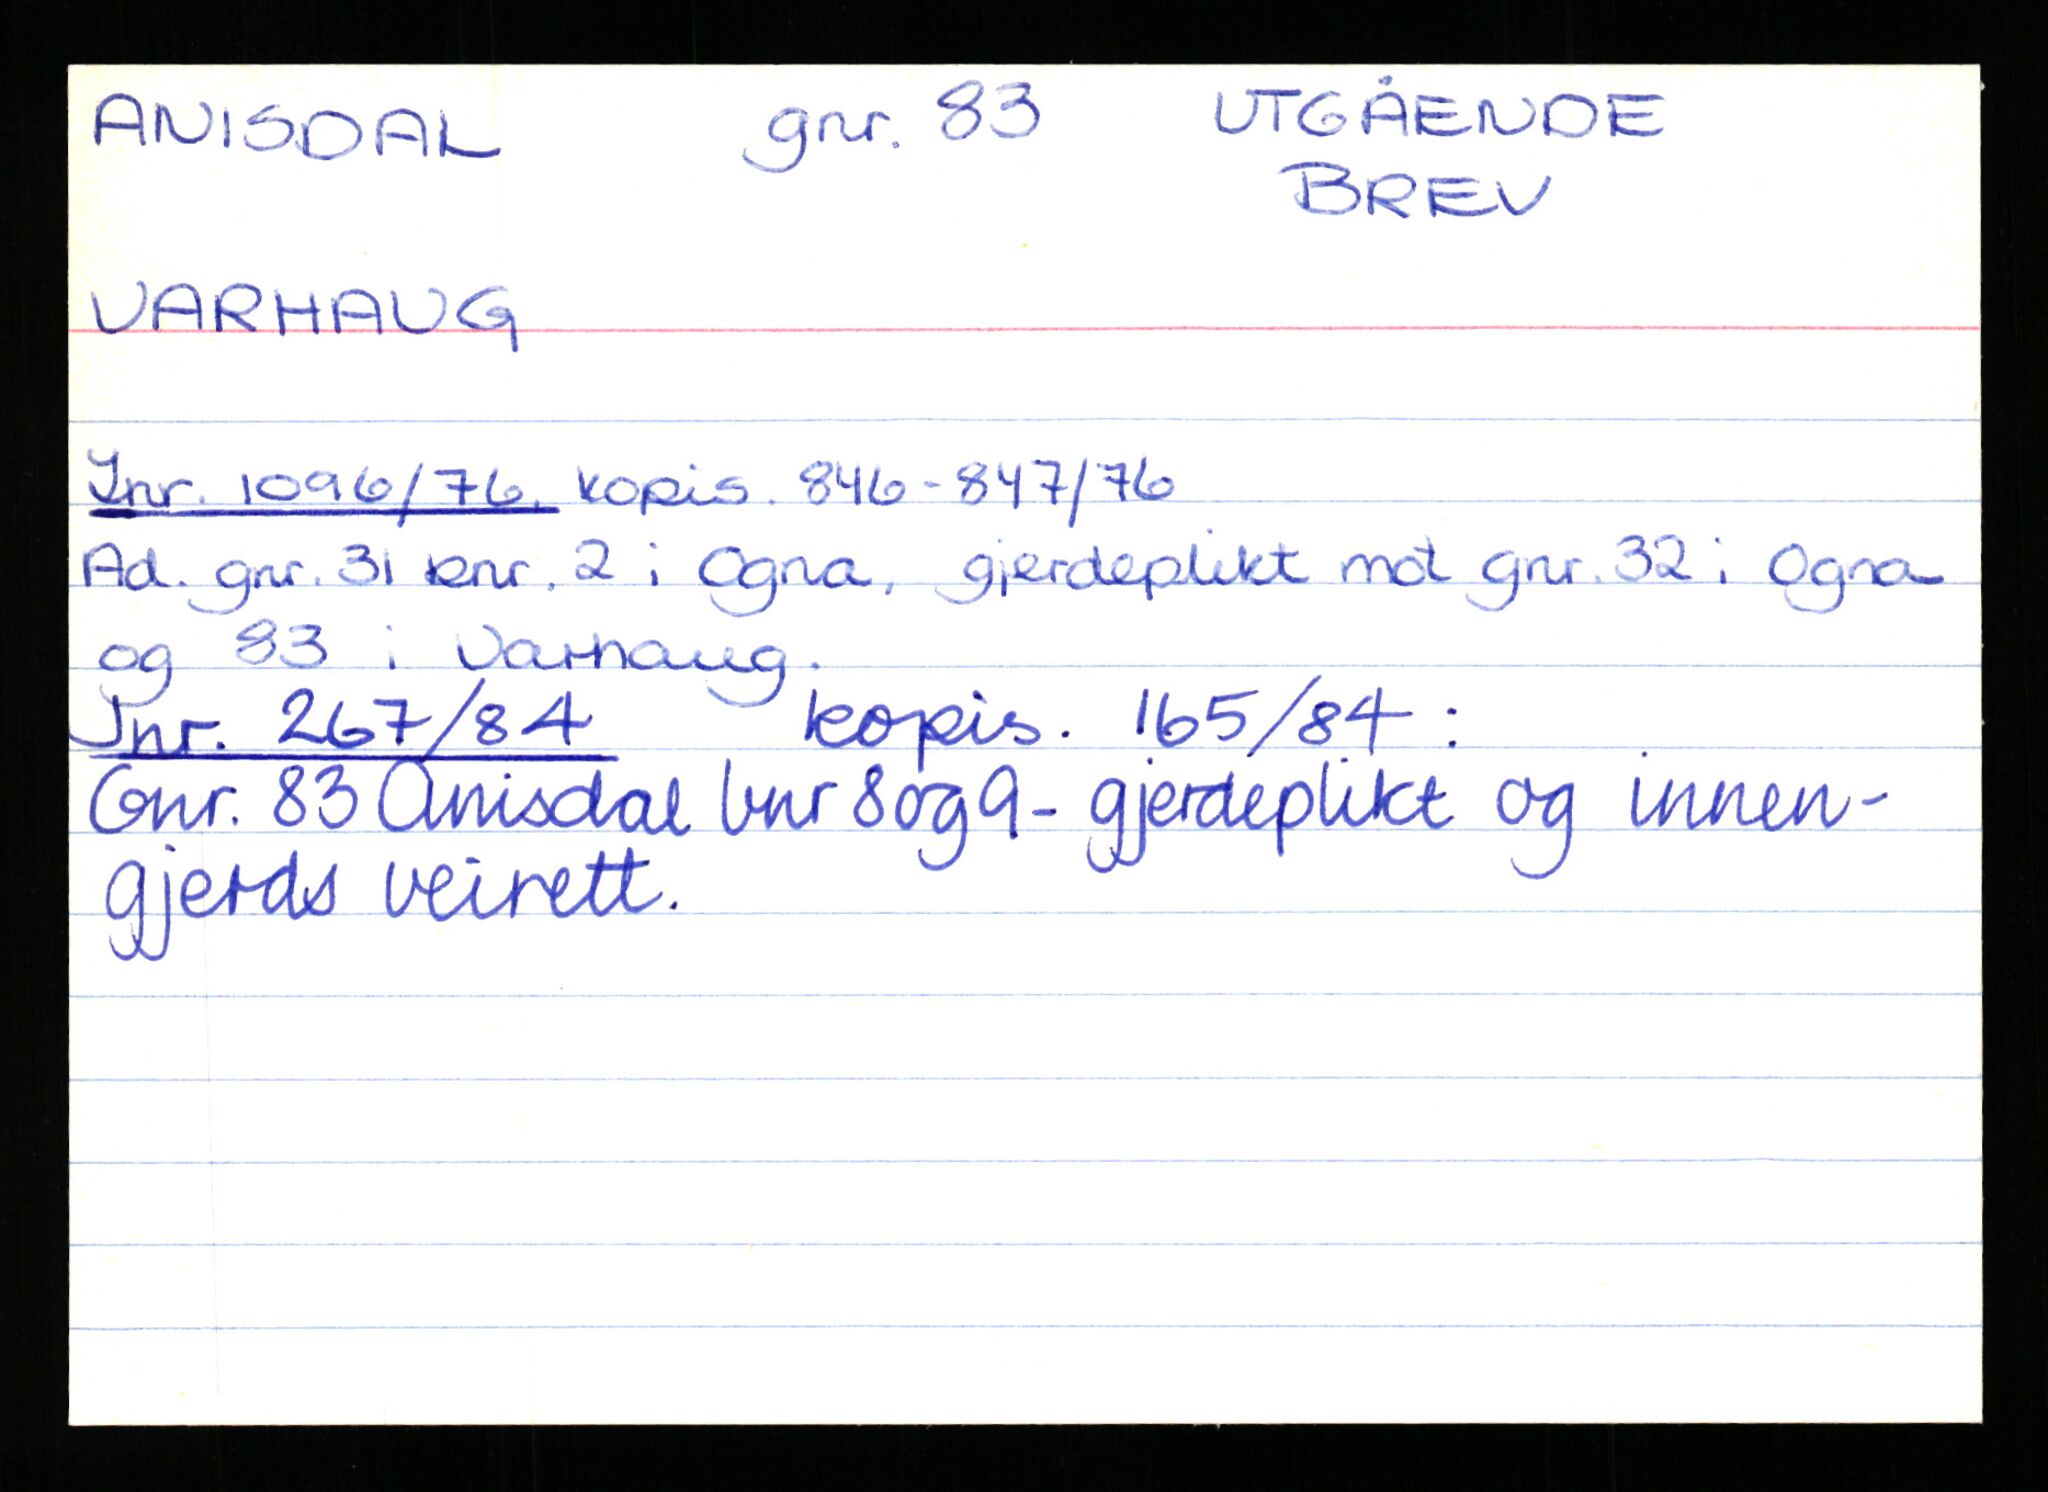 ANISDAL gnr. 83 UTGÅENDE
BREV
VARHAUG
Jnr. 1096/76, kopis. 846-847/76
Ad. gnr. 31 bnr. 2 i Ogna, gjerdeplikt mot gnr. 32 i Ogna
og 83 i Varhaug.
Jnr. 267/84 kopis. 165/84:
Gnr. 83 Anisdal bnr 8 og 9 - gjerdeplikt og innen-
gjerds veirett.